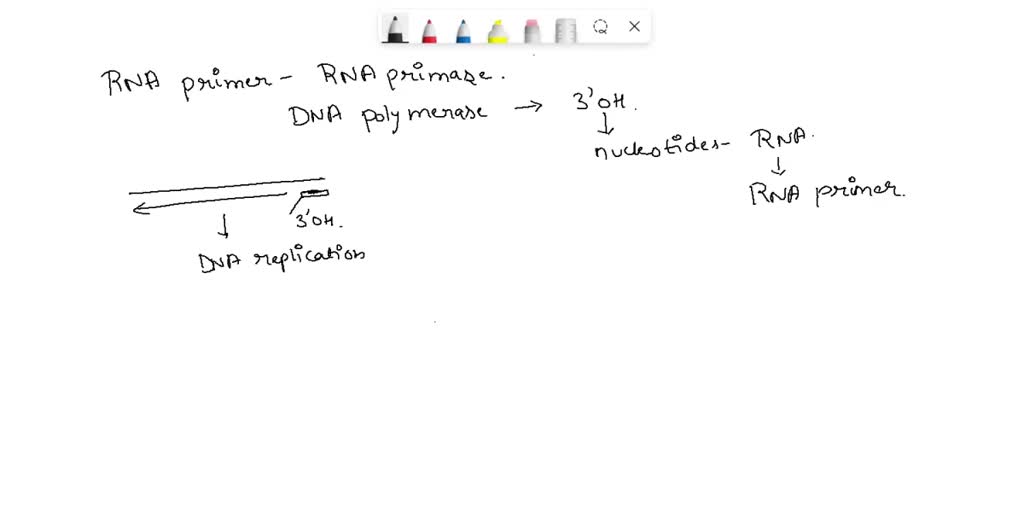 RNA primer - RNA primase.
DNA polymerase → 3'OH.
↓
nucleotides - RNA.
↓
RNA primer.
3'OH.
↓
DNA replication